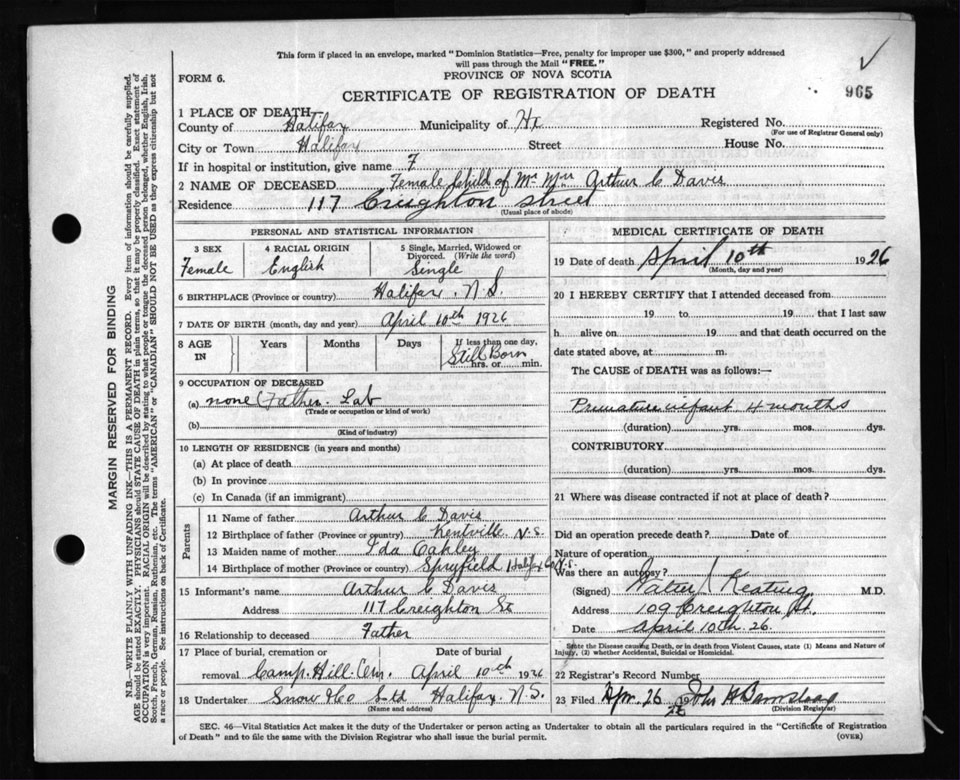 This form if placed in an envelope, marked "Dominion Statistics—Free, penalty for improper use $300," and properly addressed
will pass through the Mail "FREE."
FORM 6.
PROVINCE OF NOVA SCOTIA
965
CERTIFICATE OF REGISTRATION OF DEATH
1 PLACE OF DEATH
County of Halifax Municipality of Hx Registered No.
(For use of Registrar General only)
City or Town Halifax Street House No.
If in hospital or institution, give name F
2 NAME OF DECEASED Female Child of Mr Mrs Arthur C Davis
Residence 117 Creighton Street
(Usual place of abode)
PERSONAL AND STATISTICAL INFORMATION
3 SEX 4 RACIAL ORIGIN 5 Single, Married, Widowed or
Divorced. (Write the word)
Female English Single
6 BIRTHPLACE (Province or country) Halifax. N.S.
7 DATE OF BIRTH (month, day and year) April 10th 1926
8 AGE IN Years Months Days If less than one day,
Still Born
hrs. or min.
9 OCCUPATION OF DECEASED
(a) none (Father. Lab
(Trade or occupation or kind of work)
(b)
(Kind of industry)
10 LENGTH OF RESIDENCE (in years and months)
(a) At place of death
(b) In province
(c) In Canada (if an immigrant)
Parents
11 Name of father Arthur C Davis
12 Birthplace of father (Province or country) Kentville N.S.
13 Maiden name of mother Ida Oakley
14 Birthplace of mother (Province or country) Spryfield Halifax Co N.S.
15 Informant's name Arthur C Davis
Address 117 Creighton St
16 Relationship to deceased Father
17 Place of burial, cremation or Date of burial
removal Camp Hill Cem. April 10th 1926
18 Undertaker Snow &Co Ltd Halifax, N.S.
(Name and address)
MEDICAL CERTIFICATE OF DEATH
19 Date of death April 10th 1926
(Month, day and year)
20 I HEREBY CERTIFY that I attended deceased from
19 to 19 , that I last saw
h alive on 19 and that death occurred on the
date stated above, at m.
The CAUSE of DEATH was as follows:—
Premature infant 4 months
(duration) yrs. mos. dys.
CONTRIBUTORY
(duration) yrs. mos. dys.
21 Where was disease contracted if not at place of death?
Did an operation precede death? Date of
Nature of operation
Was there an autopsy?
(Signed) Keating M.D.
Address 109 Creighton St.
Date April 10th. 26.
State the Disease causing Death, or in death from Violent Causes, state (1) Means and Nature of
Injury, (2) whether Accidental, Suicidal or Homicidal.
22 Registrar's Record Number
23 Filed Apr. 26 19
(Division Registrar)
SEC. 46—Vital Statistics Act makes it the duty of the Undertaker or person acting as Undertaker to obtain all the particulars required in the "Certificate of Registration
of Death" and to file the same with the Division Registrar who shall issue the burial permit.
(OVER)
MARGIN RESERVED FOR BINDING
N.B.—WRITE PLAINLY WITH UNFADING INK—THIS IS A PERMANENT RECORD. Every item of information should be carefully supplied.
AGE should be stated EXACTLY. PHYSICIANS should STATE CAUSE OF DEATH in plain terms, so that it may be properly classified. Exact statement of
OCCUPATION is very important. RACIAL ORIGIN will be described by stating to what people or tongue the deceased person belonged, whether English, Irish,
Scotch, French, German, Russian, Ruthenian, etc. The terms "AMERICAN" or "CANADIAN" SHOULD NOT BE USED as they express citizenship but not
a race or people. See instructions on back of Certificate.